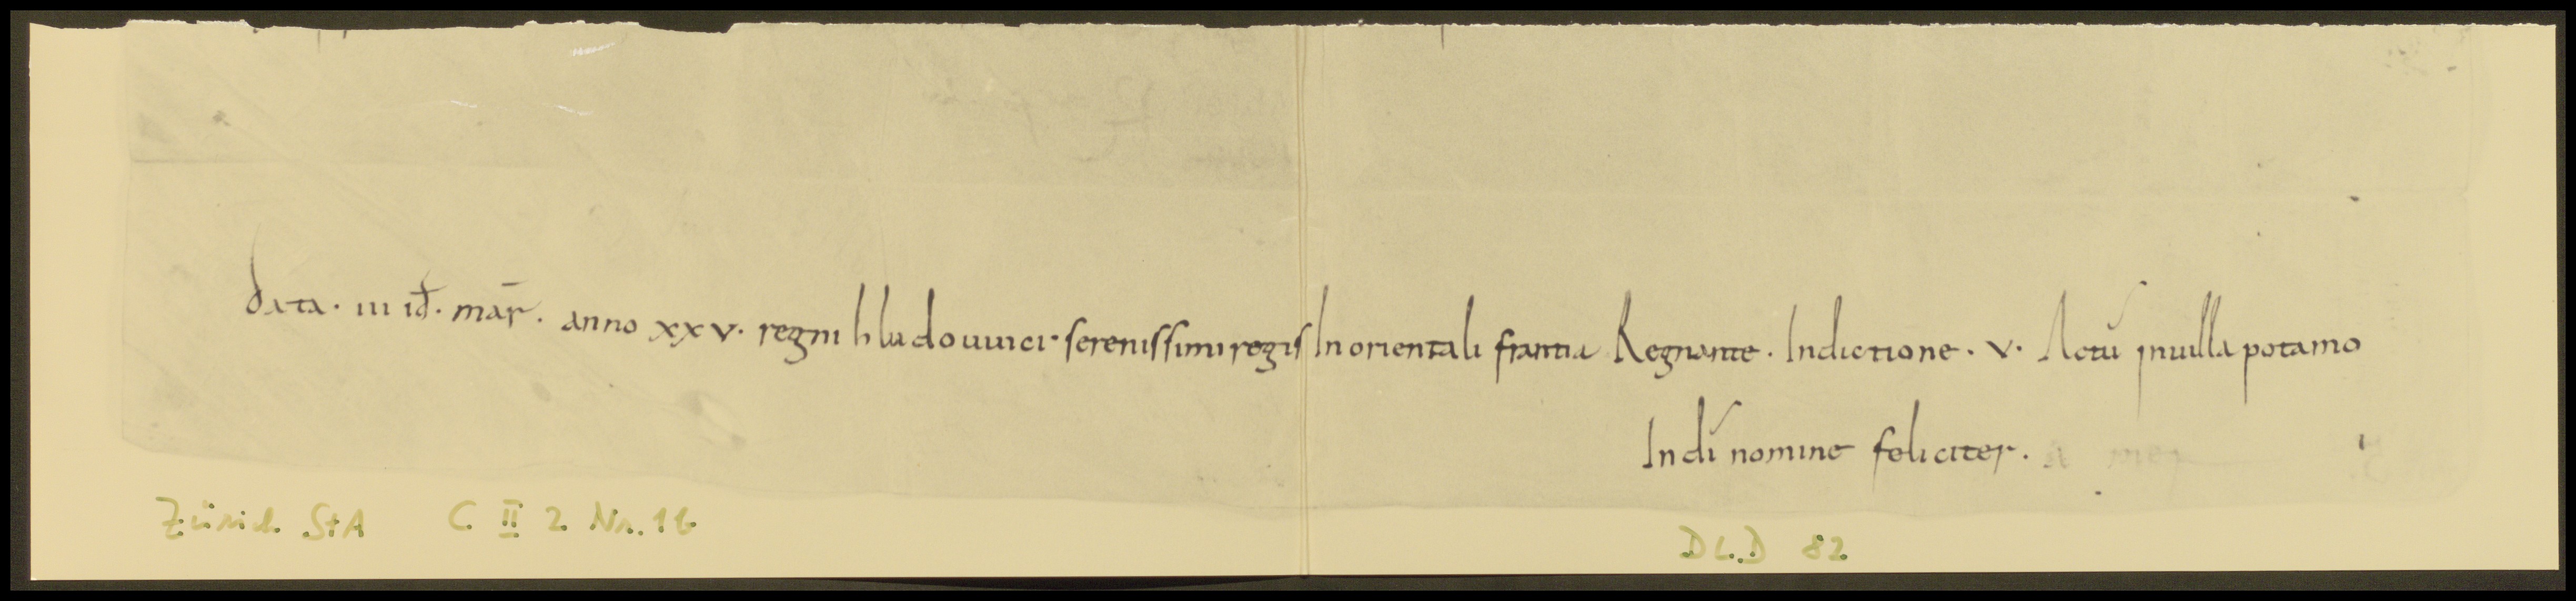 data · iii id · mar̄ · anno xxv · regni hludouuici · serenissimi regis In orientali frantia Regnante · Indictione · v · Actū in uilla potamo
In dī nomine feliciter ·
Zürich StA C II 2 Nr. 1b
DLD 82